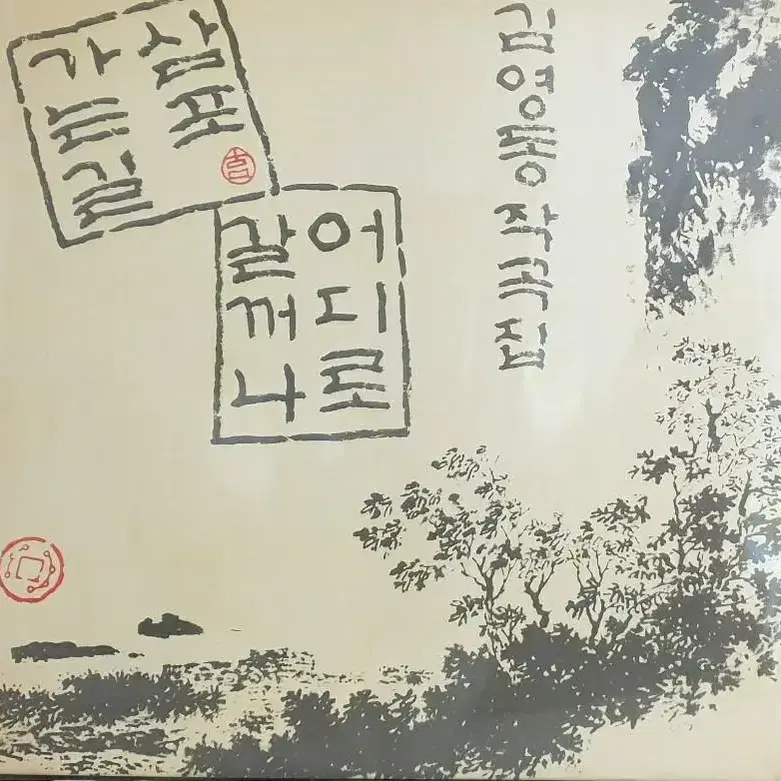 삼포
가는길
어디로
갈꺼나
김영동 작곡집